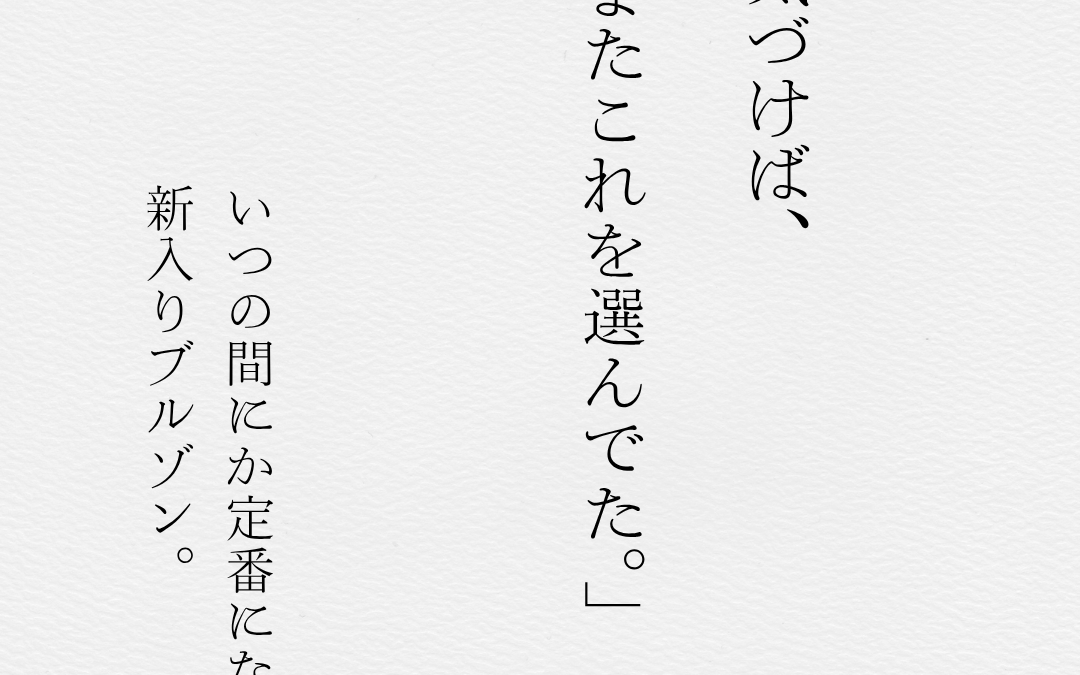 気づけば、
またこれを選んでた。」
いつの間にか定番にな
新入りブルゾン。